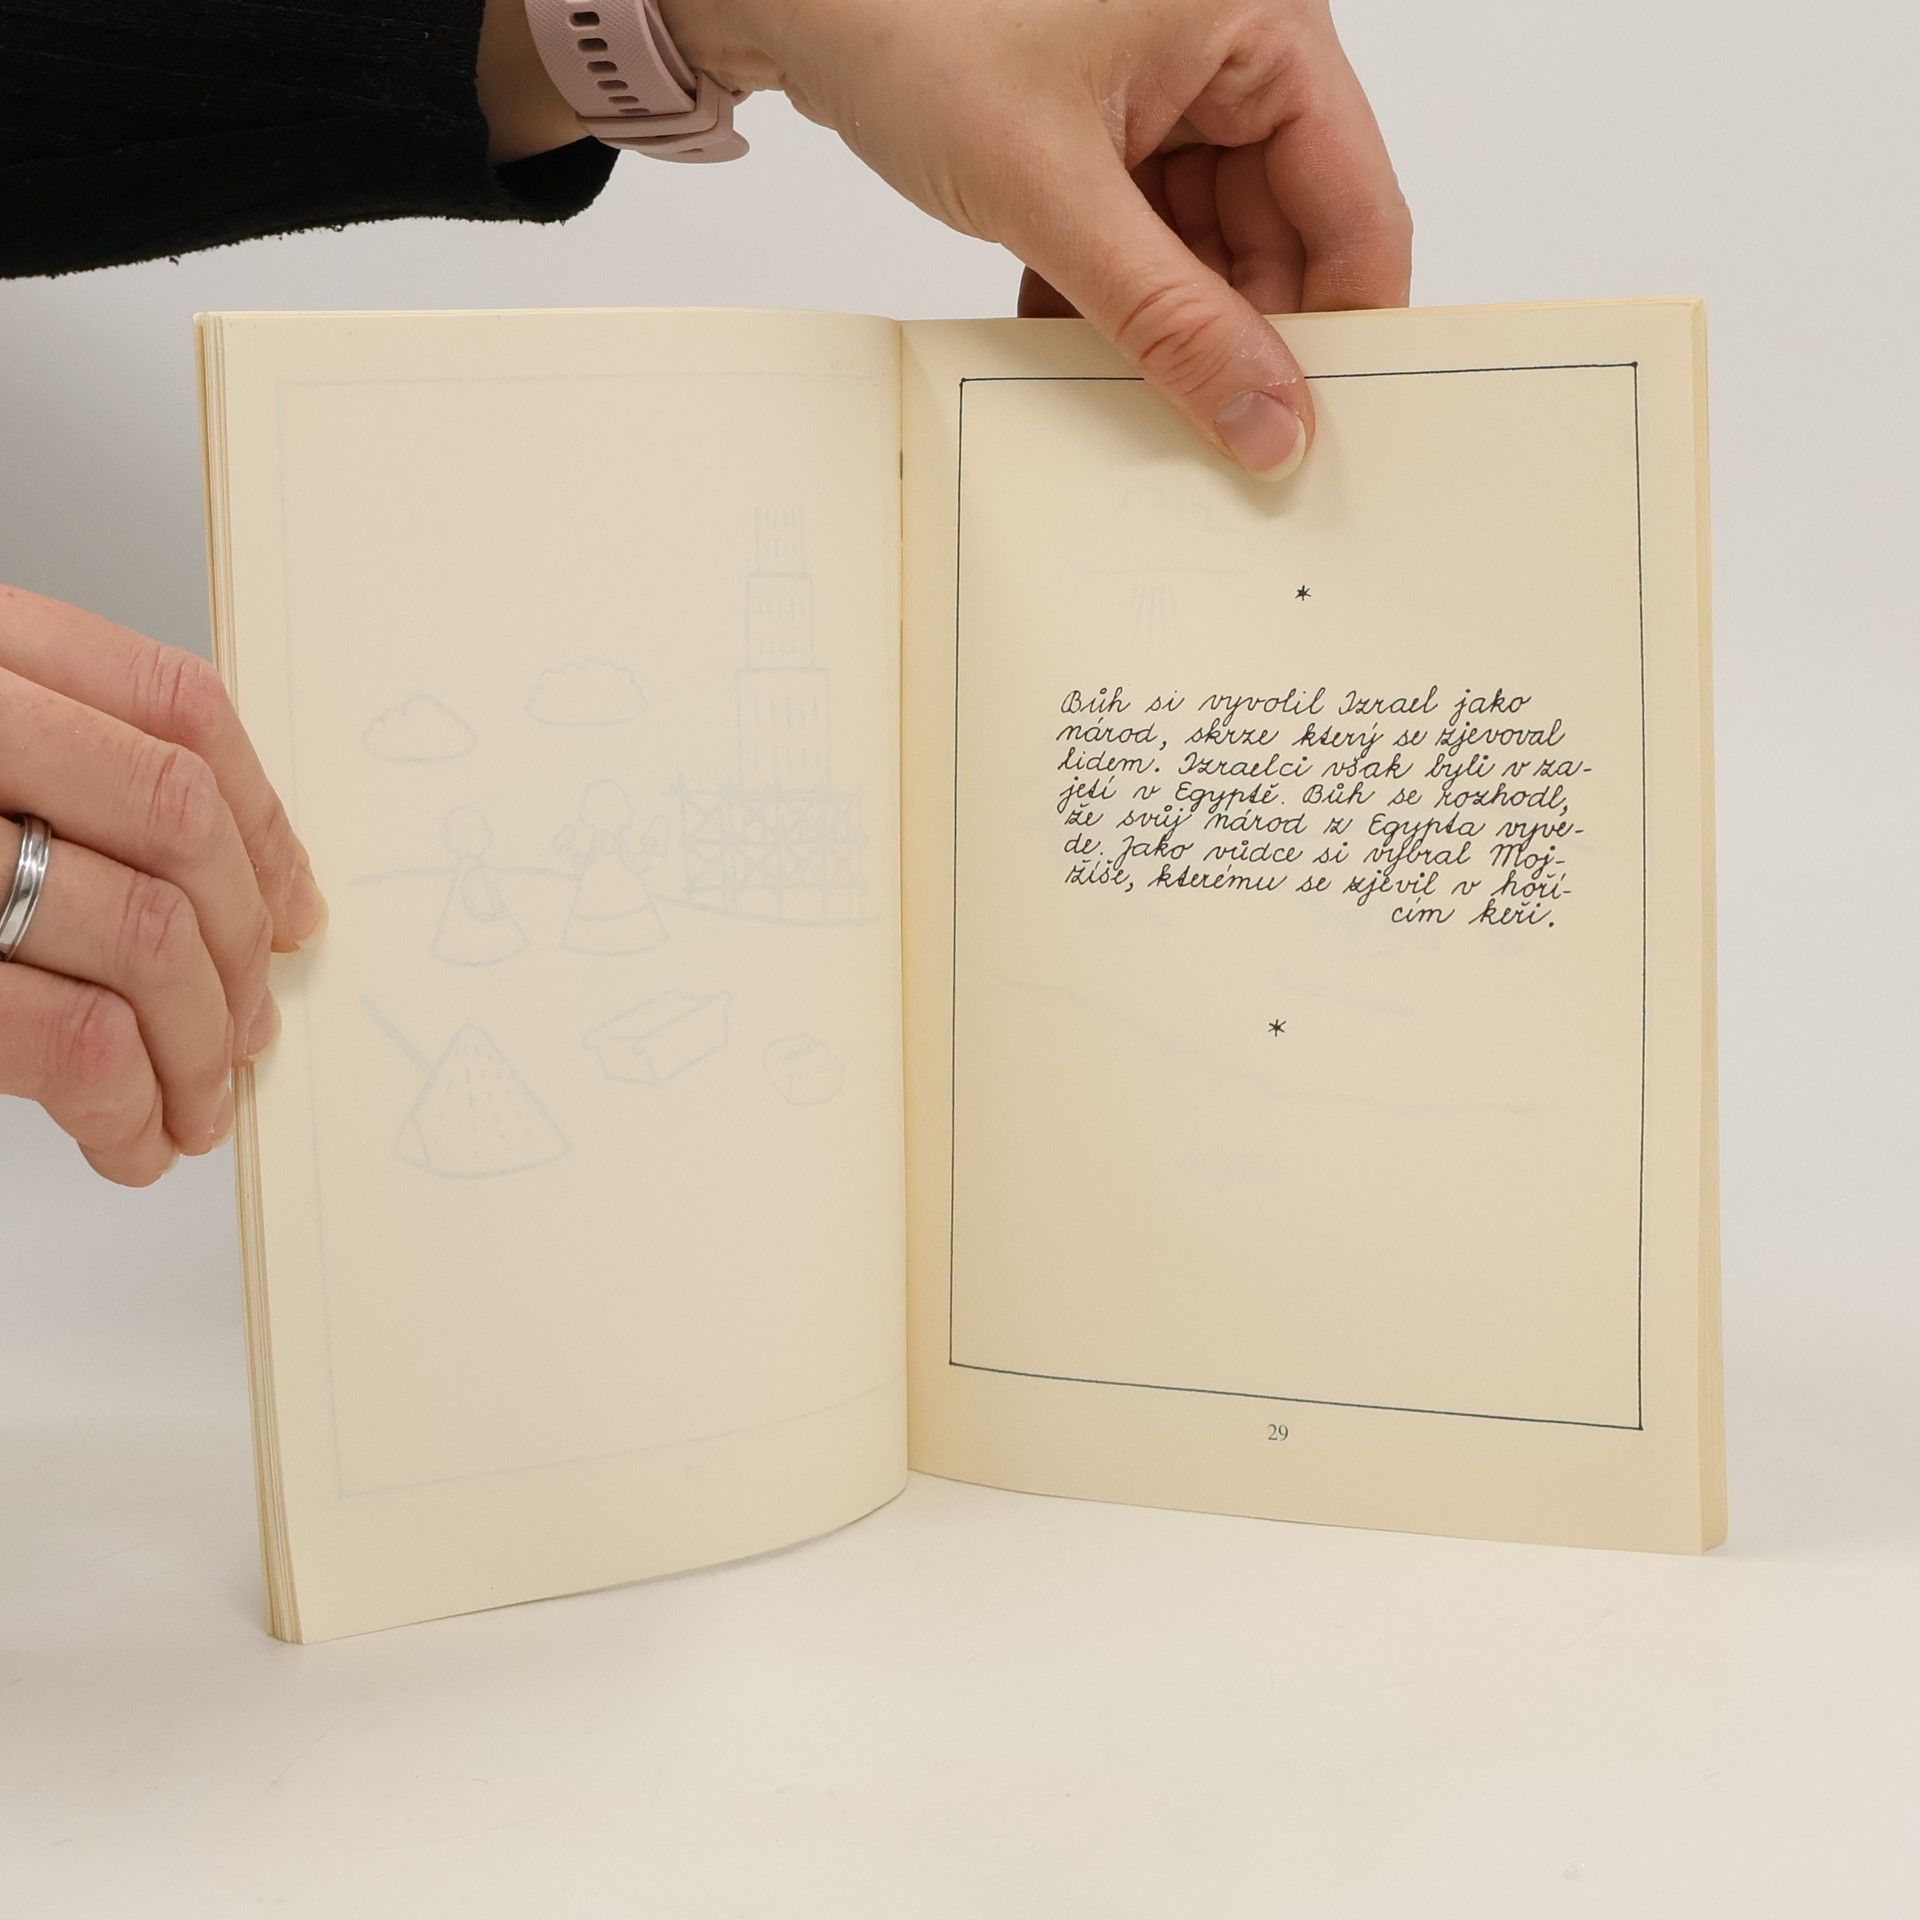 *
Bůh si vyvolil Izrael jako
národ, skrze který se zjevoval
lidem. Izraelci však byli v za-
jetí v Egyptě. Bůh se rozhodl,
že svůj národ z Egypta vyve-
de. Jako vůdce si vybral Moj-
žíše, kterému se zjevil v hoří-
cím keři.
*
29